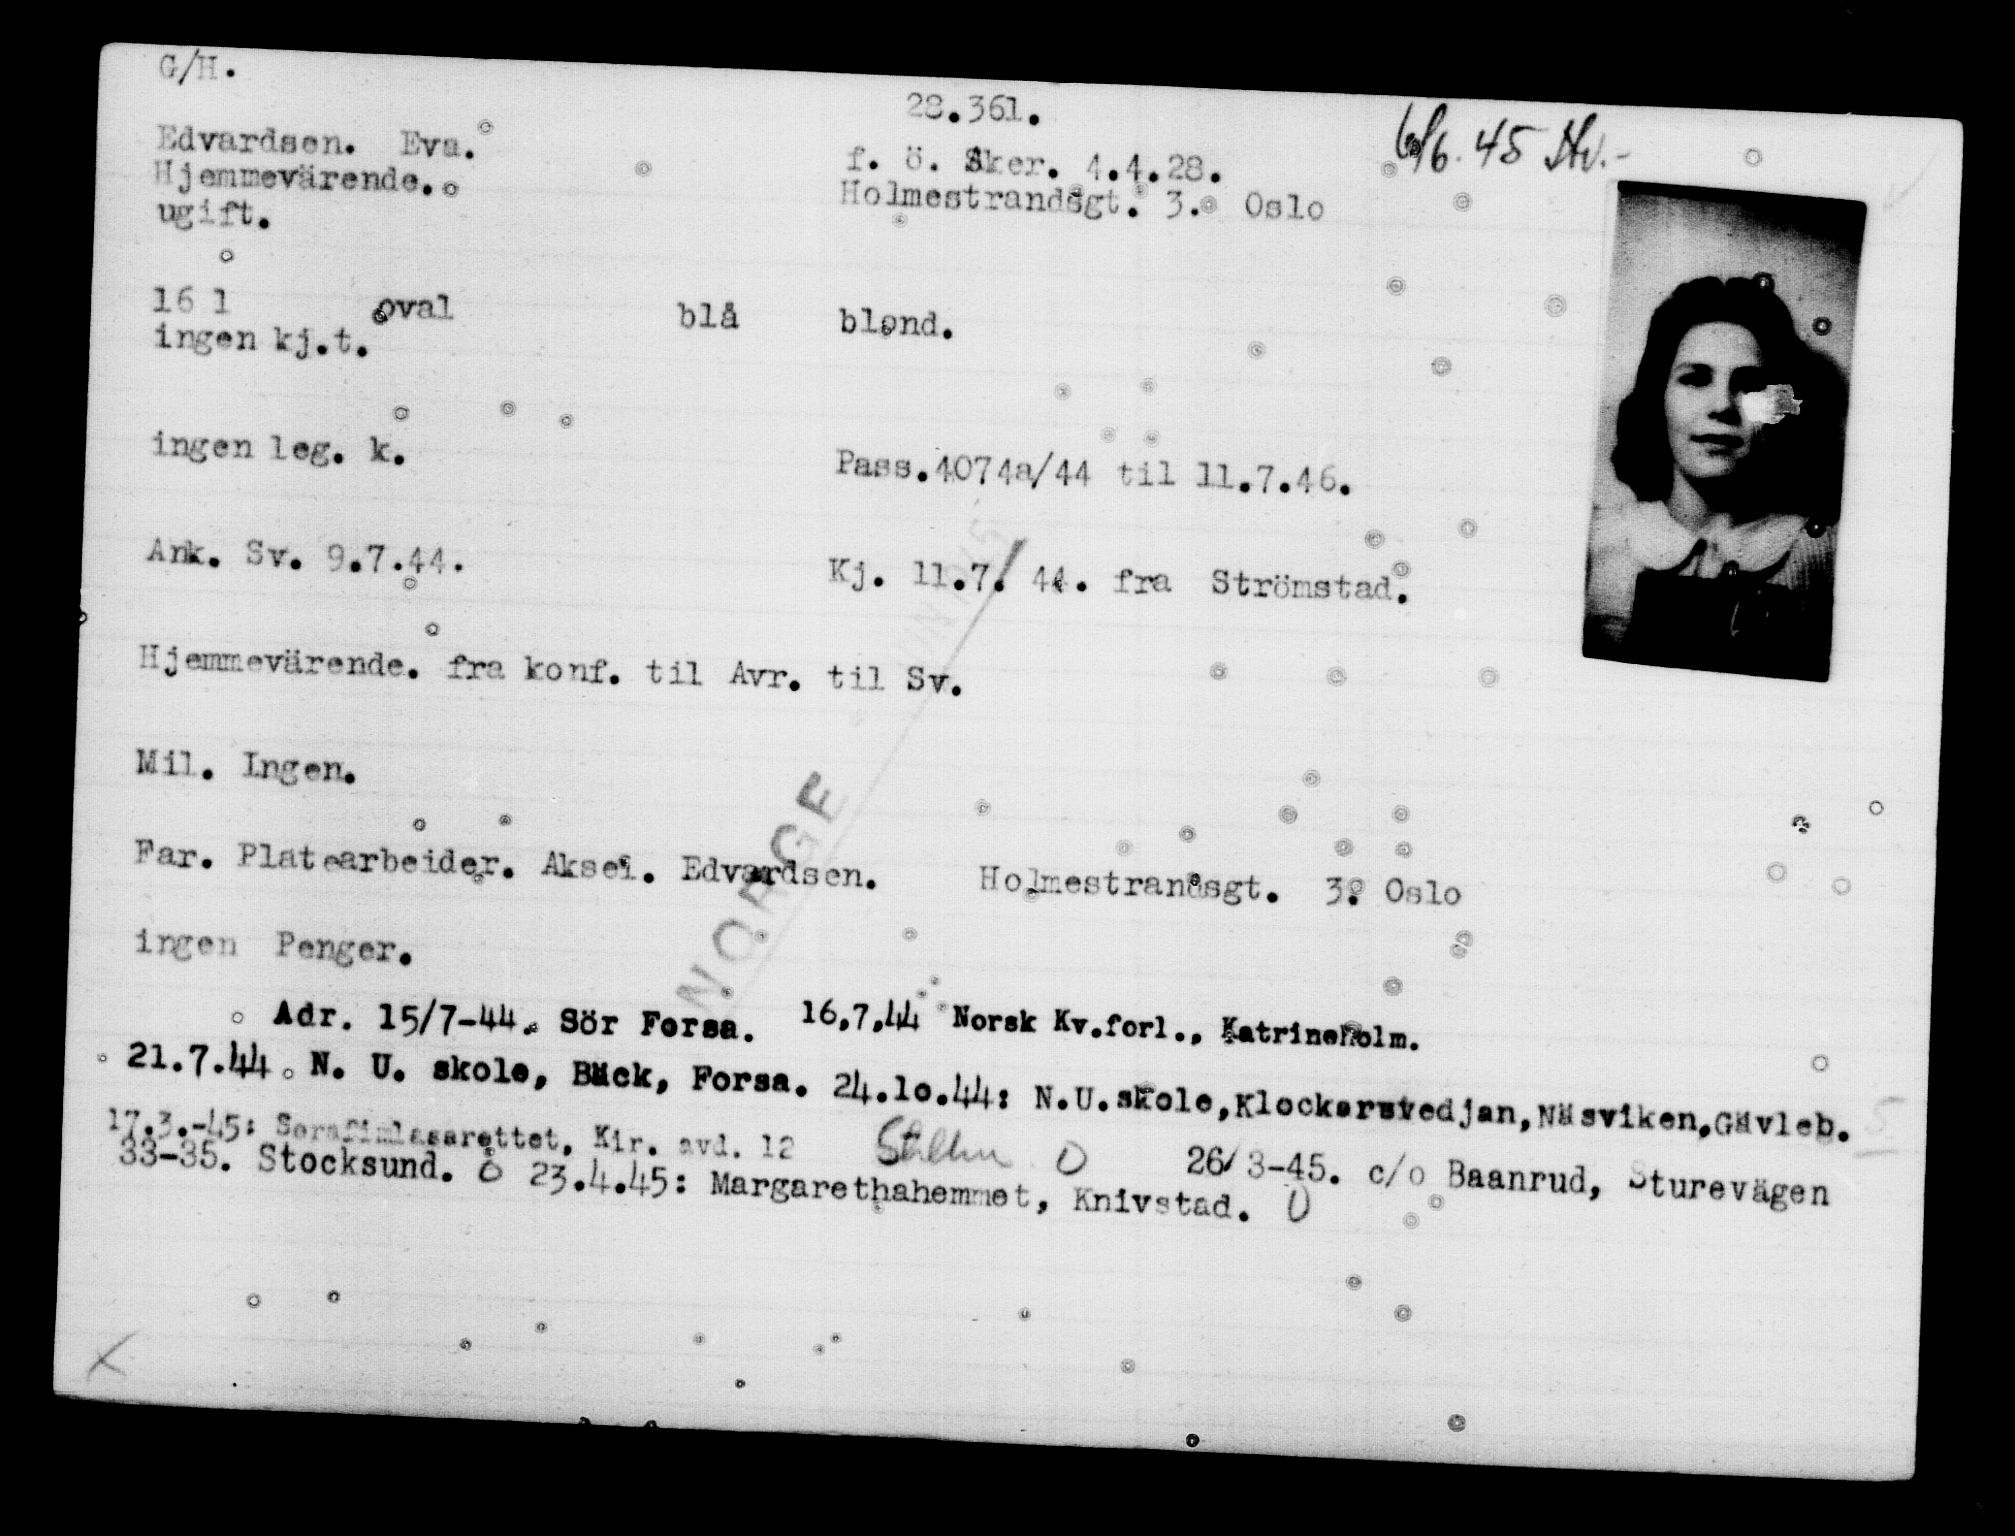 G/H.
28.361.
6/6. 45
Edvardsen. Eva.
f. ö. Aker. 4.4.28.
Hjemmevärende.
Holmestrandsgt. 3. Oslo
ugift.
161 oval blå blond.
ingen kj.t.
ingen leg. k.
Pass.4074a/44 til 11.7.46.
Ank. Sv. 9.7.44.
Kj. 11.7. 44. fra Strömstad.
Hjemmevärende. fra konf. til Avr. til Sv.
Mil. Ingen.
NORGE
Far. Platearbeider. Aksel. Edvardsen. Holmestrandsgt. 3. Oslo
ingen Penger.
Adr. 15/7-44. Sör Forsa. 16.7.44 Norsk Kv.forl., Katrineholm.
21.7.44. N. U. skole, Bäck, Forsa. 24.10.44: N.U.skole,Klockarstedjan,Näsviken,Gävleb.
17.3.-45: Serafimlasarettet, Kir. avd. 12 Sthlm 26/3-45. c/o Baanrud, Sturevägen
33-35. Stocksund. 23.4.45: Margarethahemmet, Knivstad.